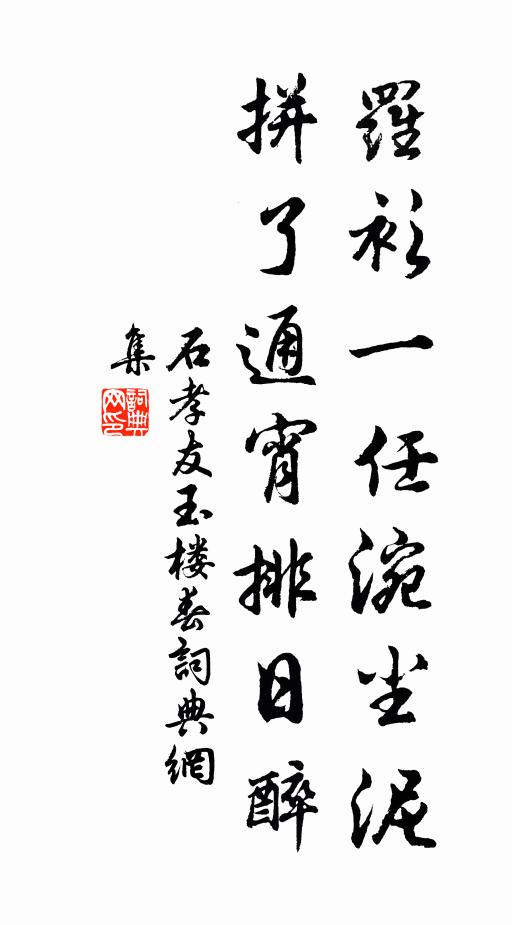 羅衫一任涴尘泥
拼了通宵排日醉
石孝友玉楼春詞典網
集
詞典网印